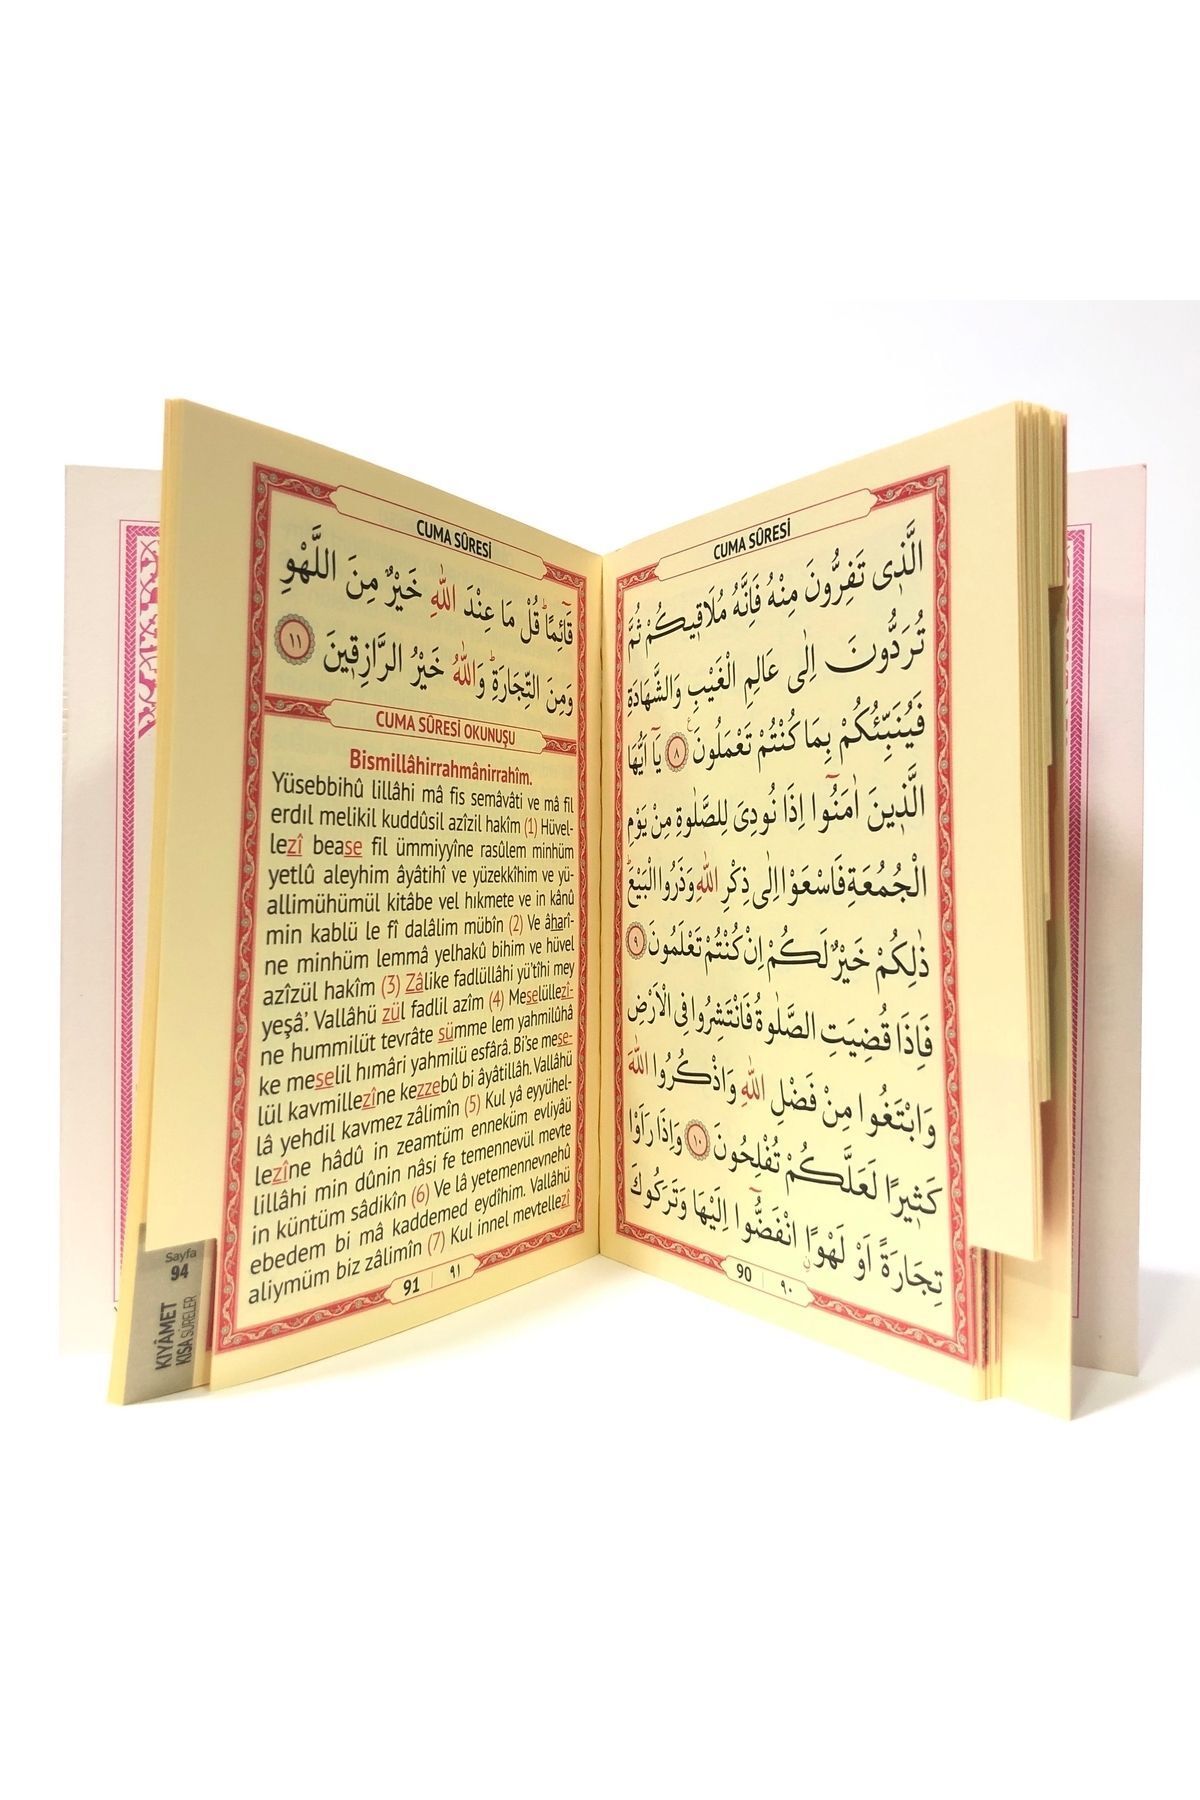 CUMA SÛRESİ
الَّذ۪ي تَفِرُّونَ مِنْهُ فَاِنَّهُ مُلَاق۪يكُمْ ثُمَّ
تُرَدُّونَ اِلٰى عَالِمِ الْغَيْبِ وَالشَّهَادَةِ
فَيُنَبِّئُكُمْ بِمَا كُنْتُمْ تَعْمَلُونَ ٨ يَٓا اَيُّهَا
الَّذ۪ينَ اٰمَنُٓوا اِذَا نُودِيَ لِلصَّلٰوةِ مِنْ يَوْمِ
الْجُمُعَةِ فَاسْعَوْا اِلٰى ذِكْرِ اللّٰهِ وَذَرُوا الْبَيْعَۜ
ذٰلِكُمْ خَيْرٌ لَكُمْ اِنْ كُنْتُمْ تَعْلَمُونَ ٩
فَاِذَا قُضِيَتِ الصَّلٰوةُ فَانْتَشِرُوا فِي الْاَرْضِ
وَابْتَغُوا مِنْ فَضْلِ اللّٰهِ وَاذْكُرُوا اللّٰهَ
كَث۪يرًا لَعَلَّكُمْ تُفْلِحُونَ ١٠ وَاِذَا رَاَوْا
تِجَارَةً اَوْ لَهْوًاۨ انْفَضُّٓوا اِلَيْهَا وَتَرَكُوكَ
90 | ٩٠
CUMA SÛRESİ
قَٓائِمًاۜ قُلْ مَا عِنْدَ اللّٰهِ خَيْرٌ مِنَ اللَّهْوِ
وَمِنَ التِّجَارَةِۜ وَاللّٰهُ خَيْرُ الرَّازِق۪ينَ ١١
CUMA SÛRESİ OKUNUŞU
Bismillâhirrahmânirrahîm.
Yüsebbihû lillâhi mâ fis semâvâti ve mâ fil
erdıl melikil kuddûsil azîzil hakîm (1) Hüvel-
lezî bease fil ümmiyyîne rasûlem minhüm
yetlû aleyhim âyâtihî ve yüzekkîhim ve yü-
allimühümül kitâbe vel hıkmete ve in kânû
min kablü le fî dalâlim mübîn (2) Ve âharî-
ne minhüm lemmâ yelhakû bihim ve hüvel
azîzül hakîm (3) Zâlike fadlüllâhi yü'tîhi mey
yeşâ'. Vallâhü zül fadlil azîm (4) Meselüllezî-
ne hummilüt tevrâte sümme lem yahmilûhâ
ke meselil hımâri yahmilü esfârâ. Bi'se mese-
lül kavmillezîne kezzebû bi âyâtillâh. Vallâhü
lâ yehdil kavmez zâlimîn (5) Kul yâ eyyühel-
lezîne hâdû in zeamtüm enneküm evliyâü
lillâhi min dûnin nâsi fe temennevül mevte
in küntüm sâdikîn (6) Ve lâ yetemennevnehû
ebedem bi mâ kaddemed eydîhim. Vallâhü
aliymüm biz zâlimîn (7) Kul innel mevtellezî
91 | ٩١
Sayfa
94
KIYÂMET
KISA SÛRELER